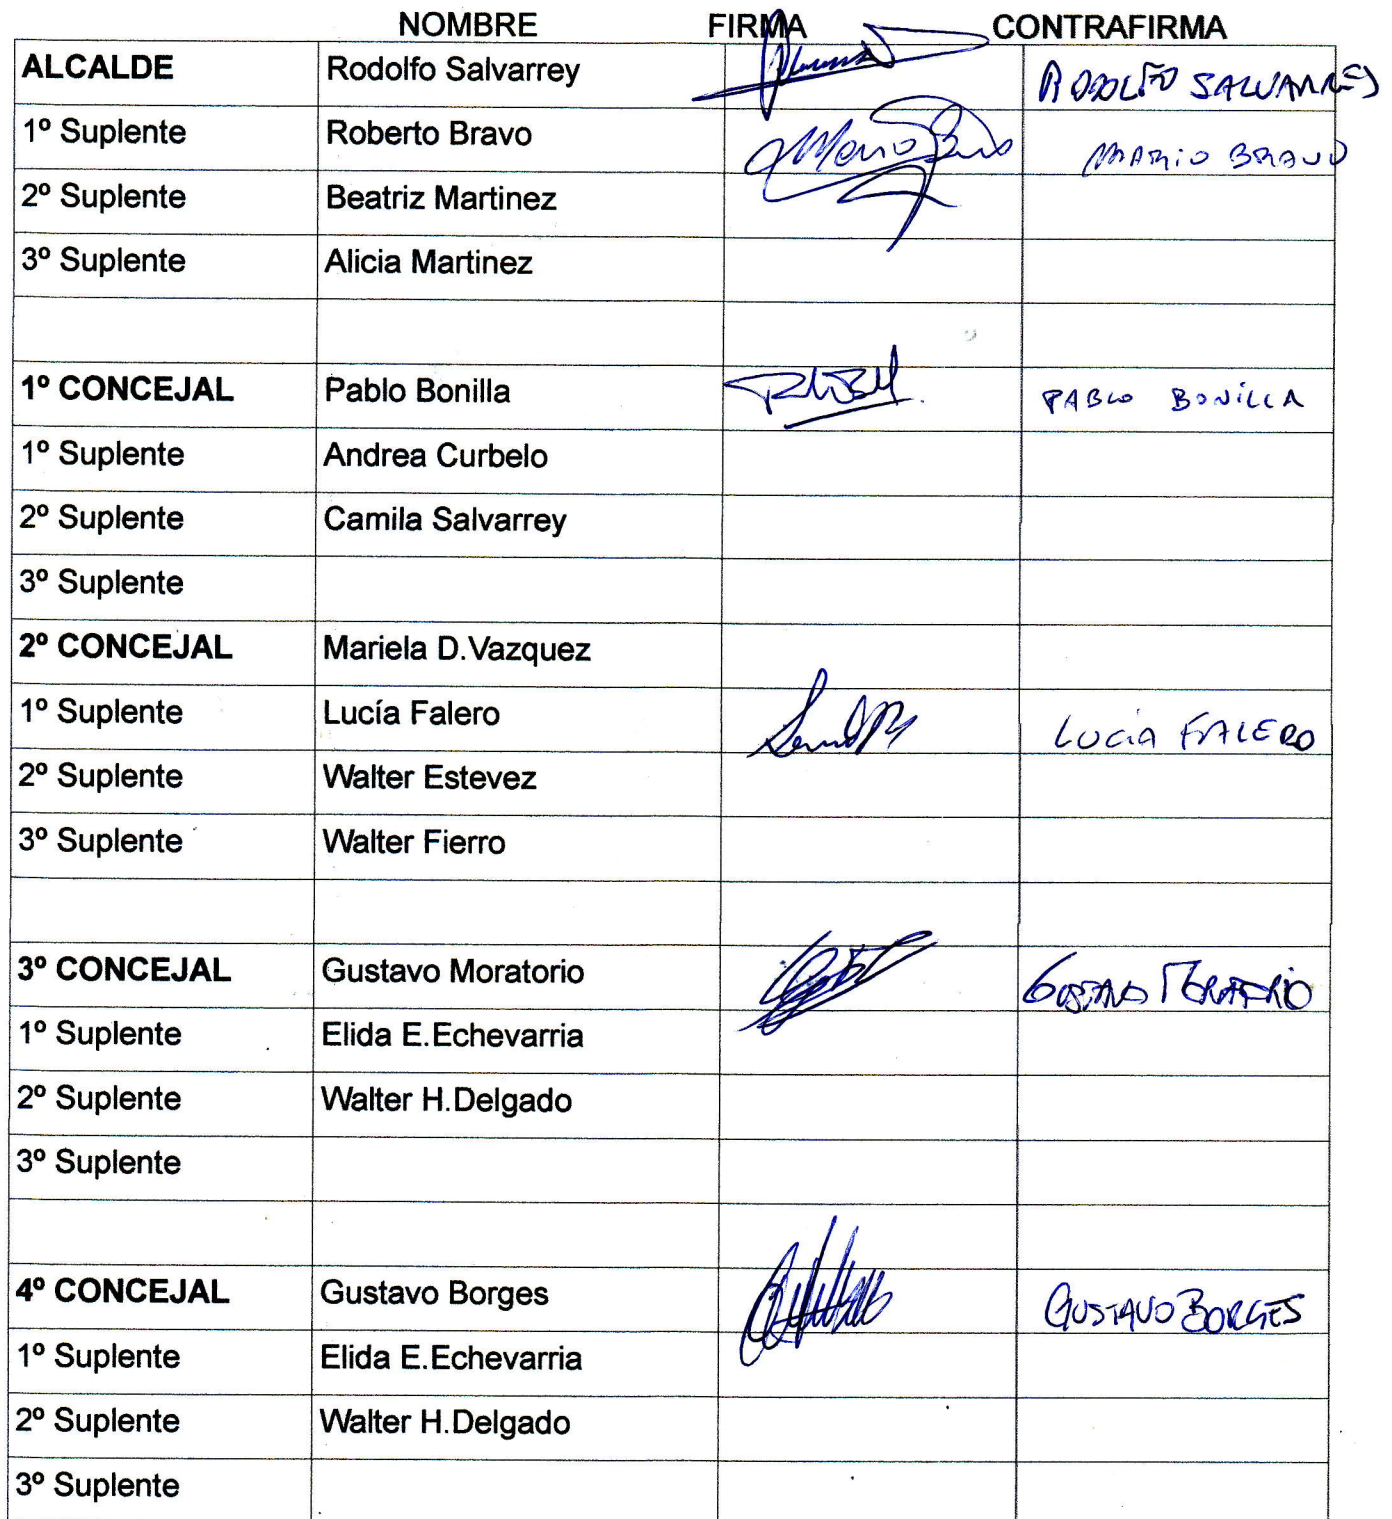 NOMBRE FIRMA CONTRAFIRMA
ALCALDE Rodolfo Salvarrey RODOLFO SALVARREY
1º Suplente Roberto Bravo Mario Bravo MARIO BRAVO
2º Suplente Beatriz Martinez
3º Suplente Alicia Martinez
1º CONCEJAL Pablo Bonilla PABLO BONILLA
1º Suplente Andrea Curbelo
2º Suplente Camila Salvarrey
3º Suplente
2º CONCEJAL Mariela D.Vazquez
1º Suplente Lucía Falero LUCíA FALERO
2º Suplente Walter Estevez
3º Suplente Walter Fierro
3º CONCEJAL Gustavo Moratorio GUSTAVO MORATORIO
1º Suplente Elida E.Echevarria
2º Suplente Walter H.Delgado
3º Suplente
4º CONCEJAL Gustavo Borges GUSTAVO BORGES
1º Suplente Elida E.Echevarria
2º Suplente Walter H.Delgado
3º Suplente